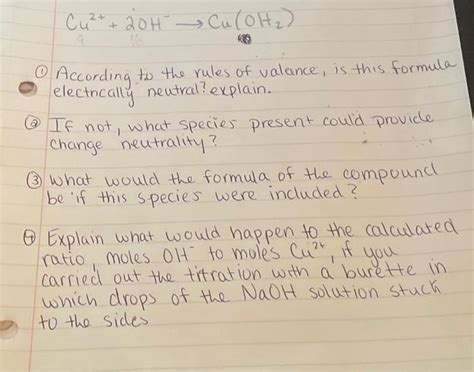 Cu²⁺ + 2OH⁻ → Cu(OH₂)
① According to the rules of valance, is this formula
electrically neutral? explain.
② If not, what species present could provide
change neutrality?
③ what would the formula of the compound
be if this species were included?
④ Explain what would happen to the calculated
ratio, moles OH⁻ to moles Cu²⁺, if you
carried out the titration with a burette in
which drops of the NaOH solution stuck
to the sides